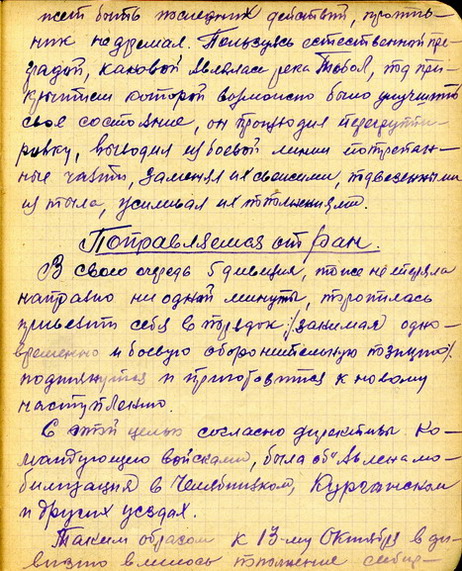 жет быть последних действий, против-
ник не дремал. Пользуясь естественной пре-
градой, каковой являлась река Тобол, под при-
крытием которой возможно было улучшить
свое состояние, он производил перегруппи-
ровку, выводил из боевой линии потрепан-
ные части, заменял их свежими, подвезенными
из тыла, усиливал их пополнениями.
Поправляемся от ран.
В свою очередь 5 дивизия, тоже не теряла
напрасно ни одной минуты, торопилась
привести себя в порядок /занимая одно-
временно и боевую оборонительную позицию/.
подтянуться и приготовиться к новому
наступлению.
С этой целью согласно директивы ко-
мандующего войсками, была об"явлена мо-
билизация в Челябинском, Курганском
и других уездах.
Таким образом к 13-му Октября в ди-
визию влилось пополнение сибир-